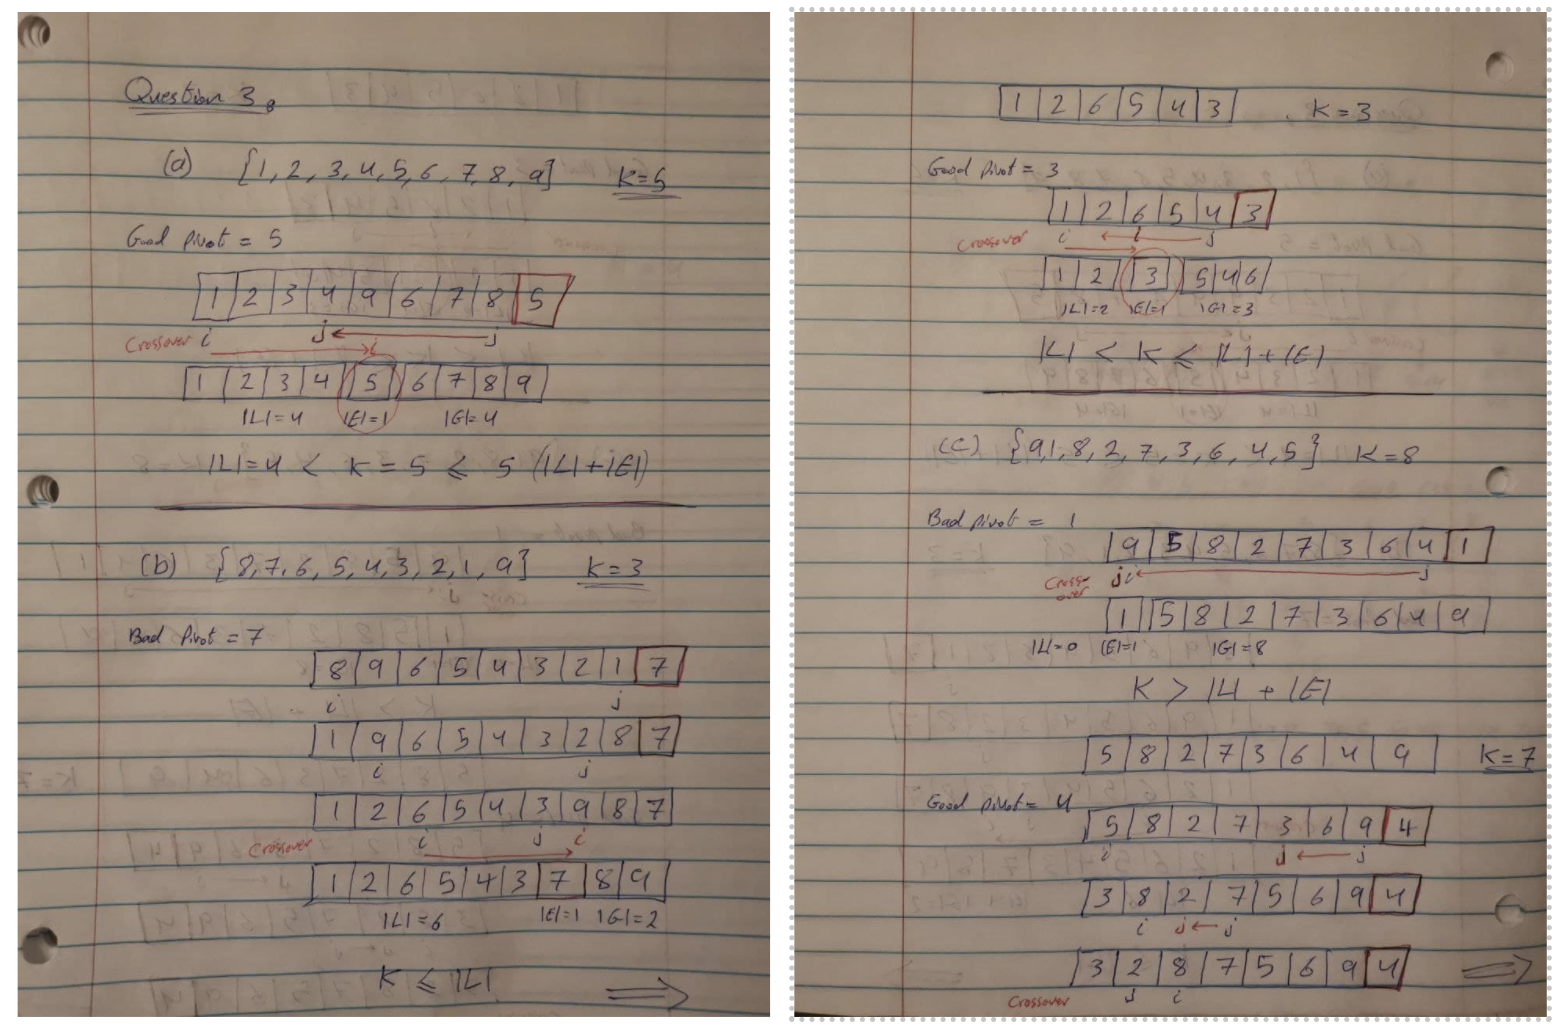 Question 3.
(a) {1, 2, 3, 4, 5, 6, 7, 8, 9} K=5
Good pivot = 5
1 2 3 4 9 6 7 8 5
j j
Crossover i i
1 2 3 4 5 6 7 8 9
|L|=4 |E|=1 |G|=4
|L|=4 < K = 5 ⩽ 5 (|L|+|E|)
(b) {8, 7, 6, 5, 4, 3, 2, 1, 9} K=3
Bad Pivot = 7
8 9 6 5 4 3 2 1 7
i j
1 9 6 5 4 3 2 8 7
i j
1 2 6 5 4 3 9 8 7
Crossover i j i
1 2 6 5 4 3 7 8 9
|L|=6 |E|=1 |G|=2
K ⩽ |L| ⇒
1 2 6 5 4 3 K=3
Good pivot = 3
1 2 6 5 4 3
Crossover i i j
1 2 3 5 4 6
|L|=2 |E|=1 |G|=3
|L| < K ⩽ |L|+|E|
(c) {9, 1, 8, 2, 7, 3, 6, 4, 5} K=8
Bad pivot = 1
9 5 8 2 7 3 6 4 1
Cross over j i j
1 5 8 2 7 3 6 4 9
|L|=0 |E|=1 |G|=8
K > |L| + |E|
5 8 2 7 3 6 4 9 K=7
Good pivot = 4
5 8 2 7 3 6 9 4
i j ← j
3 8 2 7 5 6 9 4
i j ← j
3 2 8 7 5 6 9 4 ⇒
Crossover j i